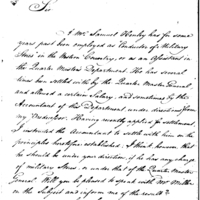 Sir
If Mr. Samuel Henley has for some
years past been employed as Conductor of Military
Stores in the Western Country, or as an Assistant in
the Quarter Masters Department. He has several
times been settled with by the Quarter Master General
and allowed a certain Salary, and sometimes by the
Accountant of this Department under directions from
my Predecessor. Having recently applied for settlement
I instructed the Accountant to settle with him on the
principles heretofore established. I think however that
he should be under your direction, if he has any charge
of military stores, or under that of the Quarter Master
General. Will you be pleased to speak with Mr
on the Subject and inform me of the result?